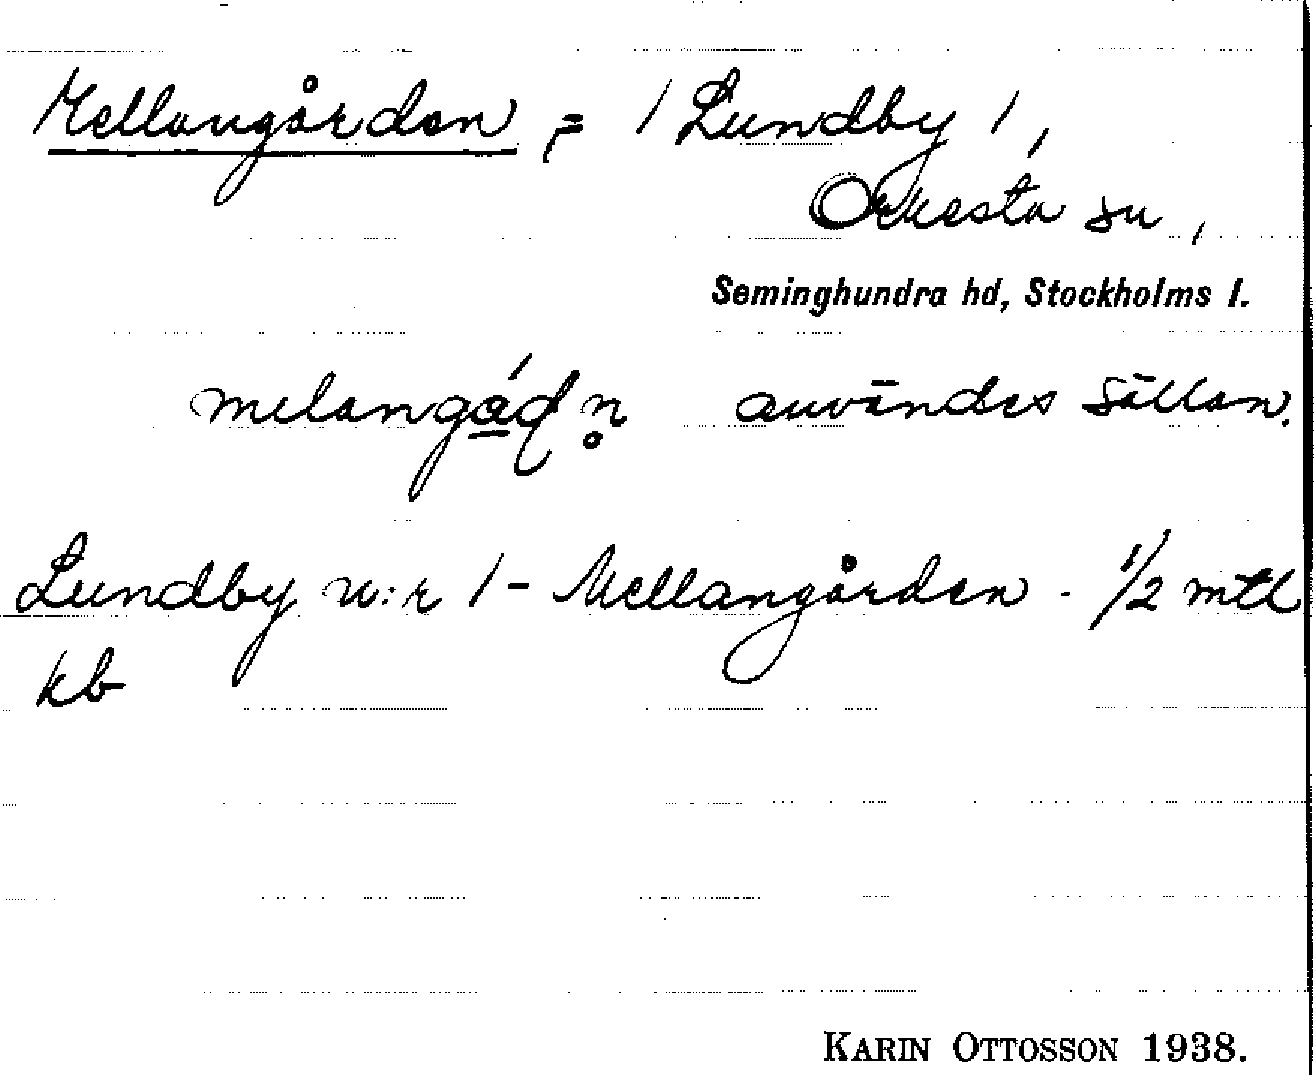 Mellangården, = / Lundby /,
Orkesta sn,
Seminghundra hd, Stockholms l.
melangɑ́ḍn̥ användes sällan.
Lundby n:r 1 - Mellangården - 1/2 mtl
kb
KARIN OTTOSSON 1938.